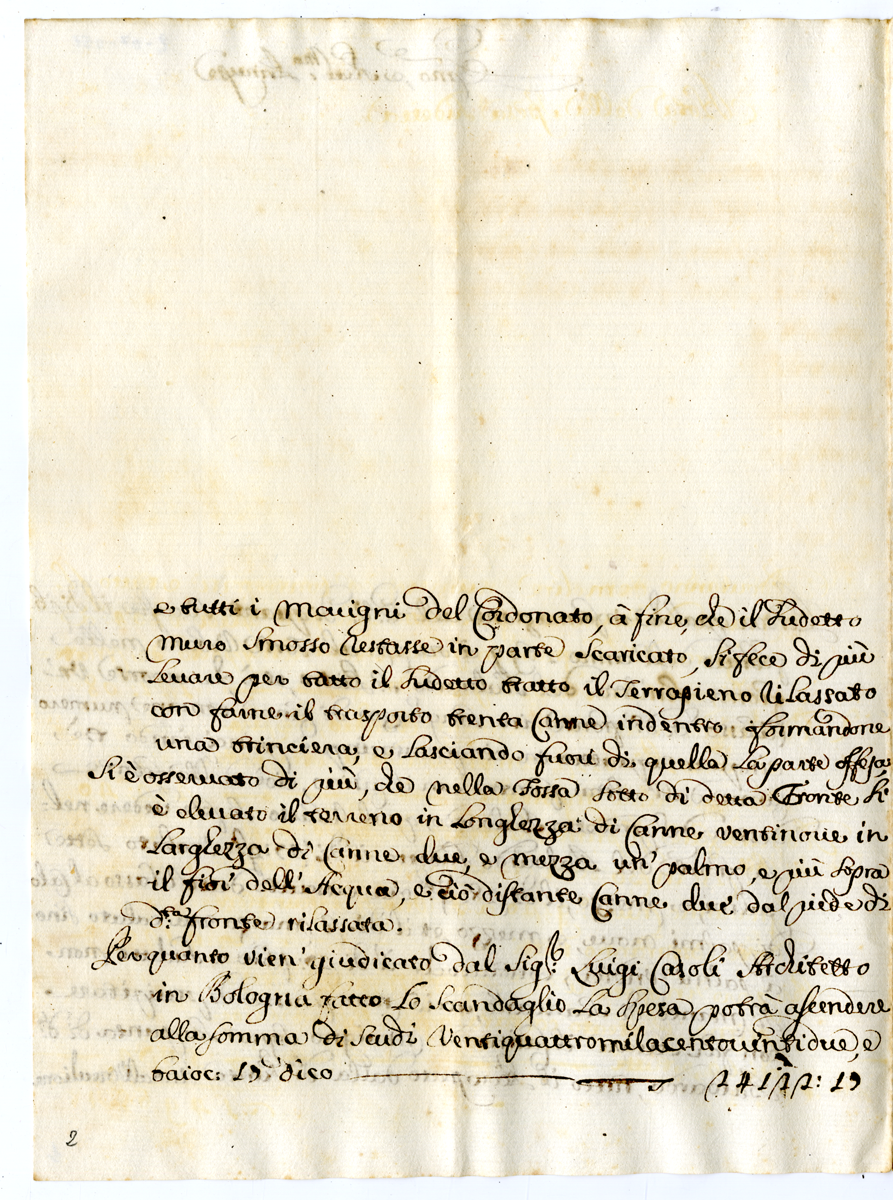 e tutti i Macigni del Cordonato, à fine, che il sudetto
muro smosso restasse in parte scaricato, si fece di più
levare per tutto il sudetto tratto il Terrapieno rilassato
con farne il trasporto trenta Canne indentro formandone
una trinciera, e lasciando fuori di quella la parte offesa
Si è osservato di più, che nella Fossa sotto di detta Fronte si
è elevato il terreno in Longhezza di Canne ventinove in
Larghezza di Canne due, e mezza un' palmo, e più sopra
il fior dell' Acqua, e ciò distante Canne due dal piede di
d.ta fronte rilassata.
Per quanto vien' giudicato dal Sig.r Luigi Casoli Architetto
in Bologna fatto lo scandaglio la spesa potrà ascendere
alla somma di scudi ventiquattromilacentoventidue, e
baioc: 19 dico 24122: 19
2